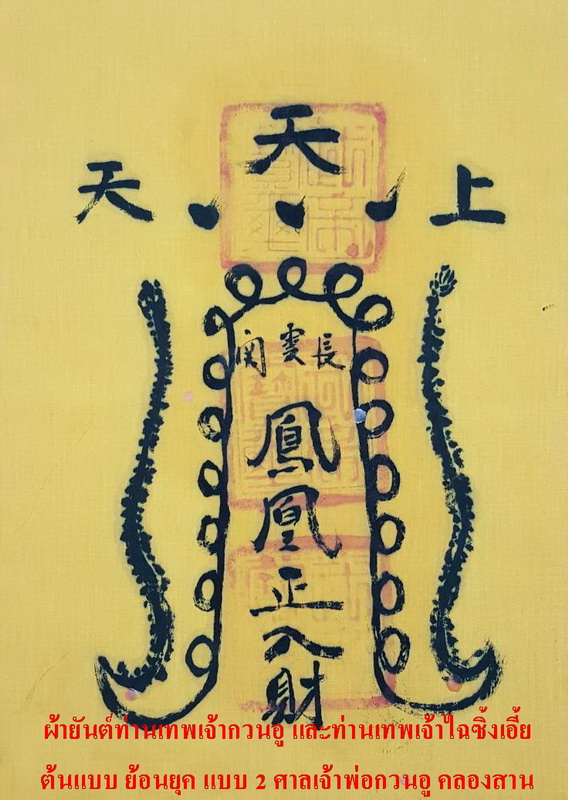 天
天 上
関雲長
鳳凰正入財
ผ้ายันต์ท่านเทพเจ้ากวนอู และท่านเทพเจ้าไฉซิ้งเอี้ย
ต้นแบบ ย้อนยุค แบบ 2 ศาลเจ้าพ่อกวนอู คลองสาน